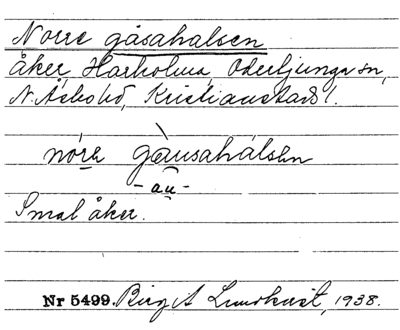 Norre gåsahalsen
åker, Harholma, Oderljunga sn,
N. Åsbo hd, Kristianstads l.
nó̱re gàu̯sahálsen
- au̯ -
Smal åker.
Nr 5499. Birgit Lundkvist, 1938.